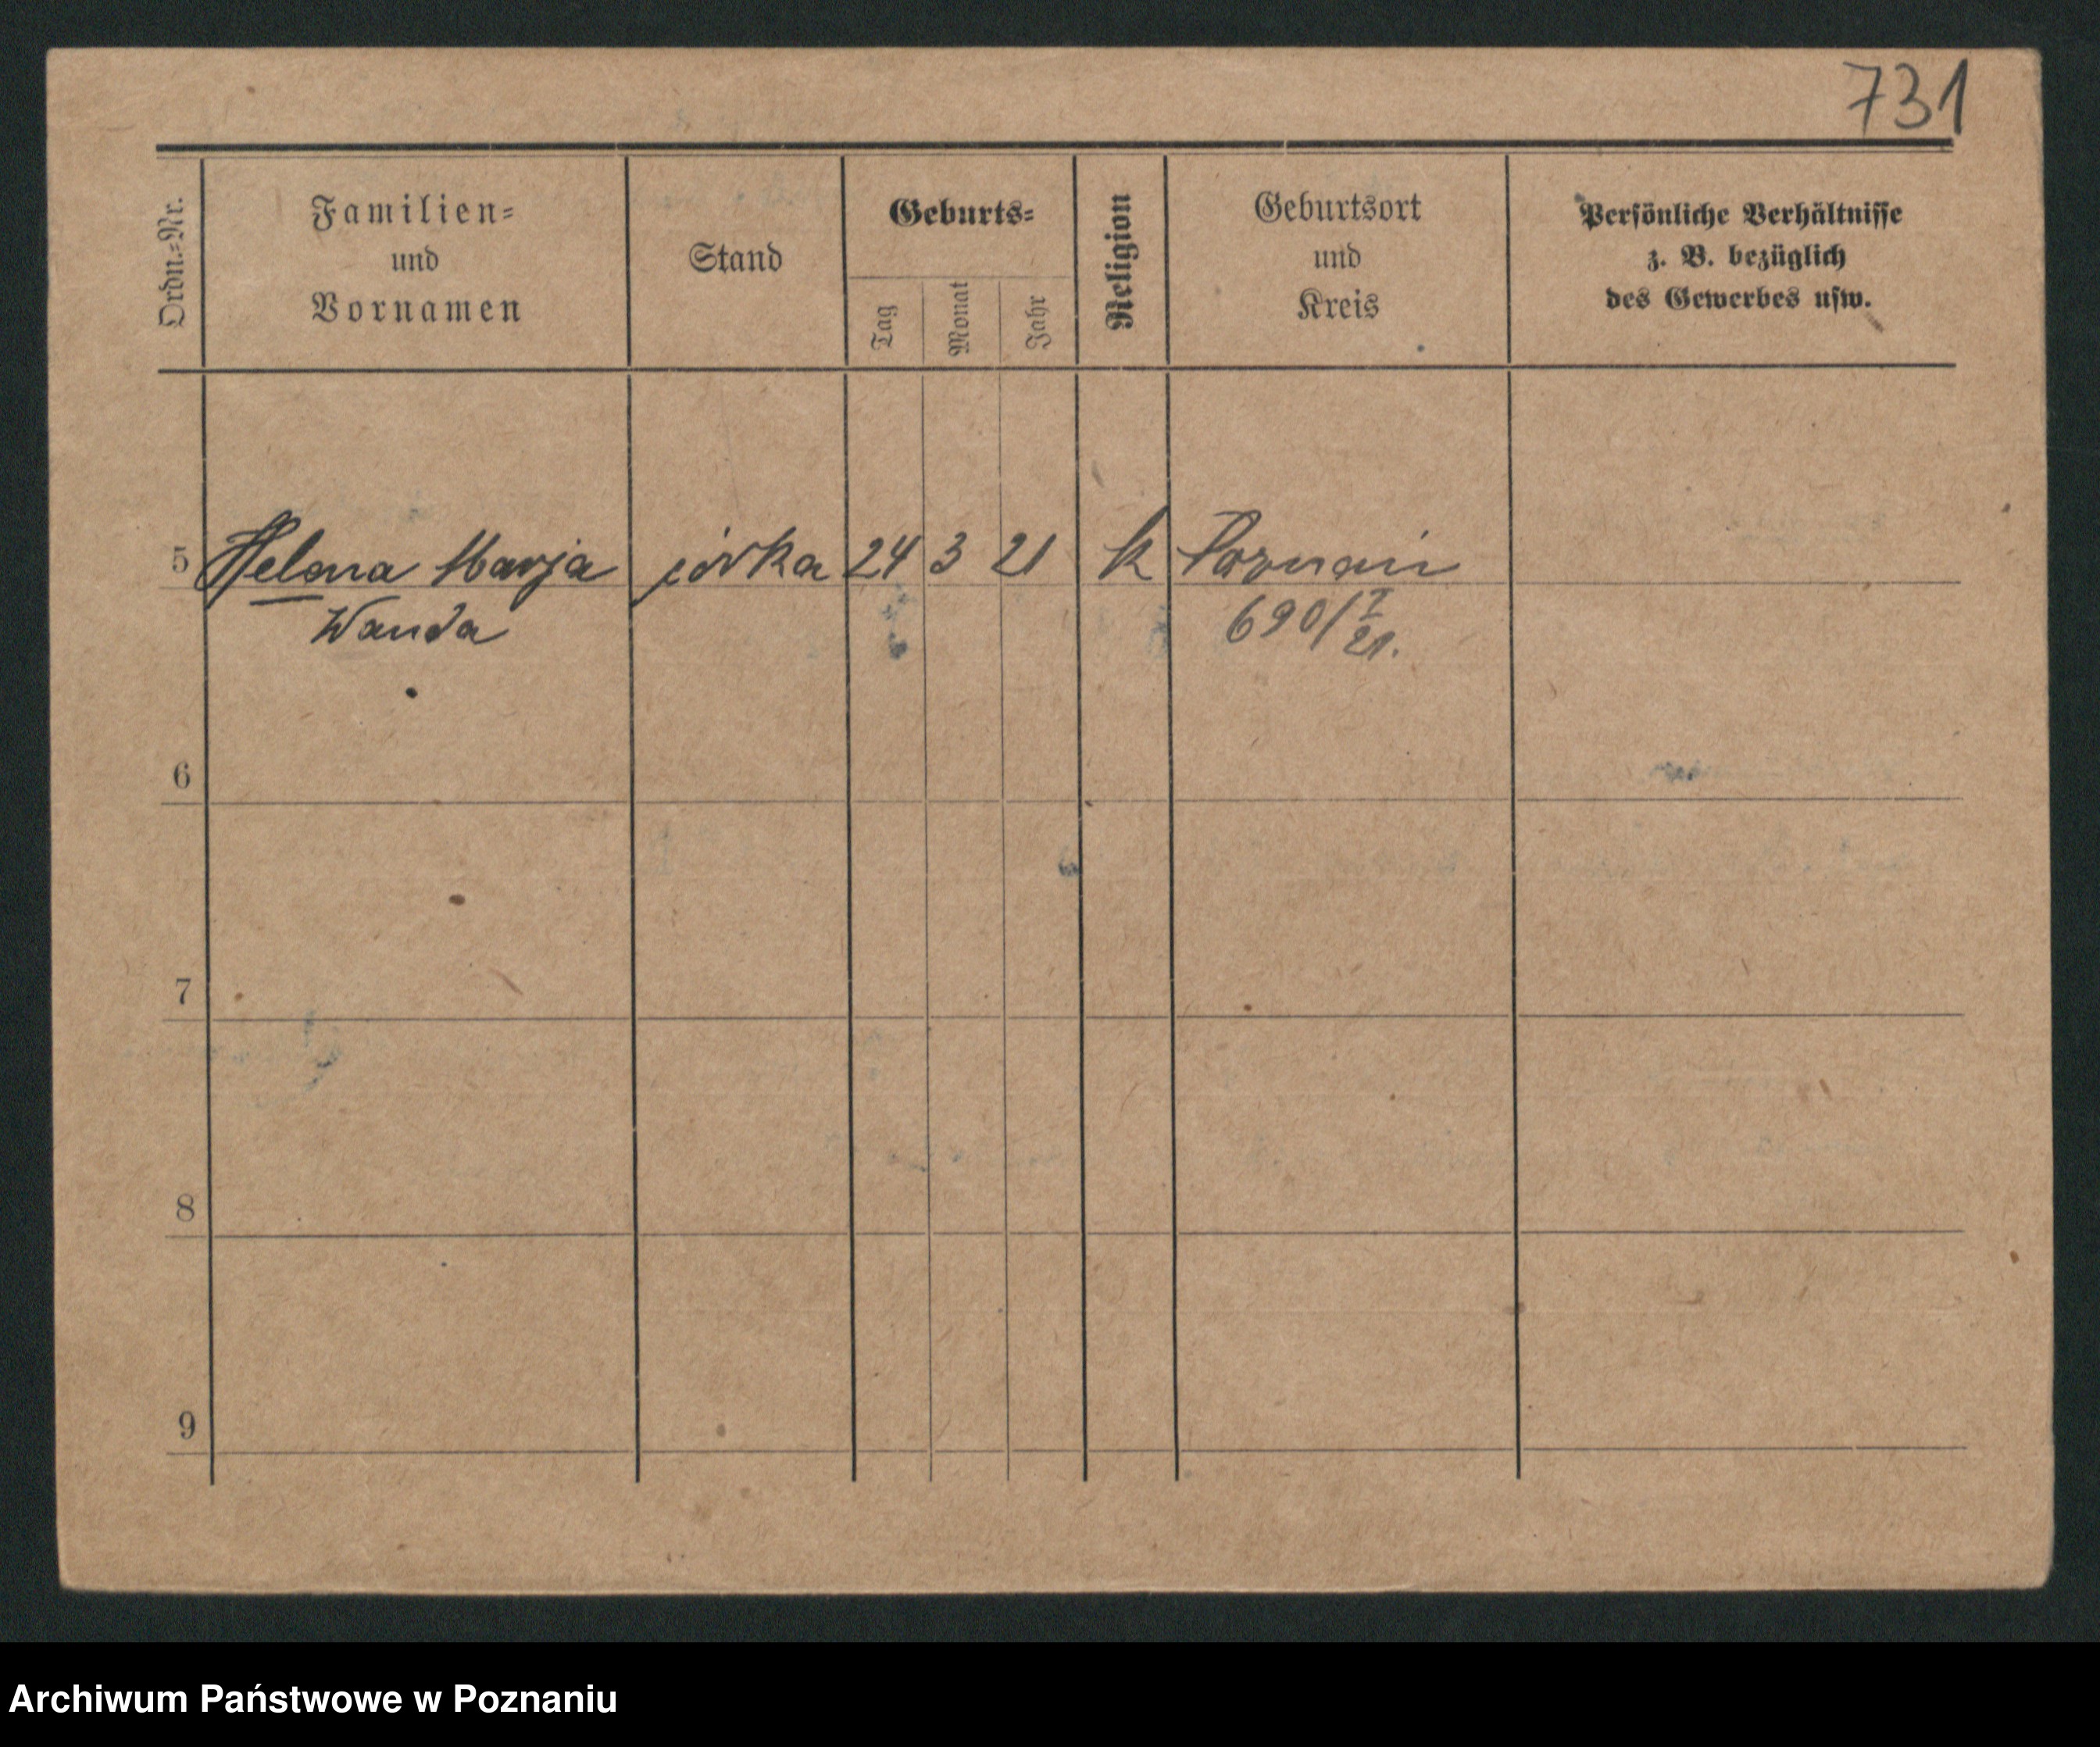 731
Ordn.-Nr.
Familien-
und
Vornamen
Stand
Geburts-
Tag
Monat
Jahr
Religion
Geburtsort
und
Kreis
Persönliche Verhältnisse
z. B. bezüglich
des Gewerbes usw.
5 Helena Marja córka 24 3 21 k Poznań
Wanda 690/I
21.
6
7
8
9
Archiwum Państwowe w Poznaniu